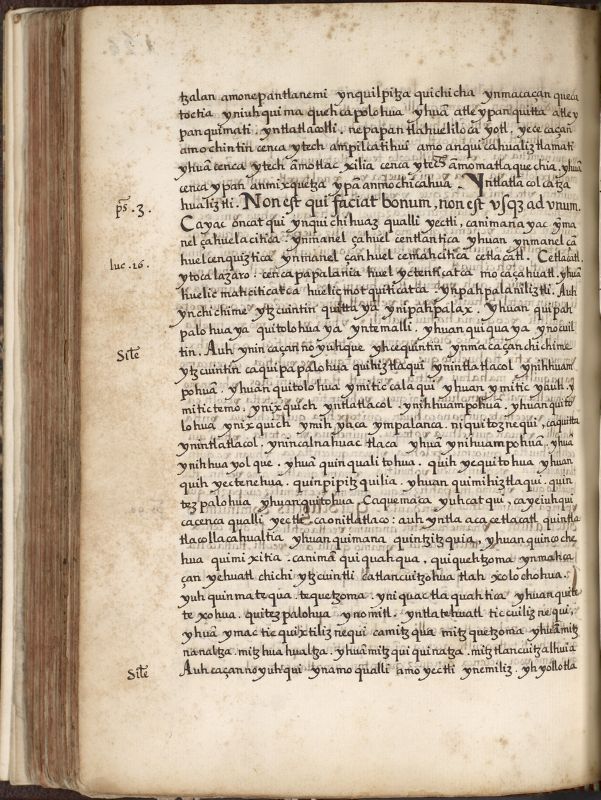 tzalan amonepantlanemi ynquilpitza quichicha ynmacaçan queca
toctia yniuhquima quehcapolohua yhuã atle ypan quitta atley
panquimati . yntlatlacolli . nepapan tlahuelilocayotl . yece caçan
amochintin cenca ytech ampilcatihui amo anquicahualiztlamati
yhuã cenca ytech amotlacxilia cenca ytech amomatlaquechia . yhuã
cenca ypan anmixquetza ypã anmochicahua . Yntlatlacolcatza
ps . 3 .
hualiztli . Non est qui faciat bonum, non est vsqz ad vnum.
Cayac oncat qui ynquichihuaz qualli yectli . canimanayac yma
nel çahuelacitica . ynmanel çahuel centlantica yhuan ynmanel cã
luc . 16 .
huelcenquiztica ynmanel çanhuel cemahcitica cetlacatl . Cetlacatl
ytoca lazaro : cenca papalania huel yctenticatca mocaçahuatl . yhuã
huelic mahciticatca huelic motquiticatca . ynpahpalaniliztli . Auh
ynchichime ytzcuintin quittaya ynipahpalax . yhuan quipah
palohuaya quitolohuaya yntemalli . yhuan quiquaya ynocuil
Sitẽ
tin . Auh ynin caçan noyuhque yhcequintin ynmacaçan chichime
ytzcuintin caquipapalohua quihiztlaqui ynintlatlacol ynihhuam
pohuã . yhuan quitolohua ymitic calaqui yhuan ymitic yauh . y
mitictemo . ynixquich yntlatlacol . ynihhuampohuã . yhuan quito
lohua ynixquich ymihyaca ympalanca . niquitoznequi , caquitta
ynintlatlacol . ynincalnahuac tlaca yhuã ynihuampohua , yhuã
ynihhuayolque . yhuã quinqualitohua . quihyecquitohua yhuan
quihyectenehua . quinpipitzquilia . yhuan quimihiztlaqui . quin
tezpalohua yhuanquitohua Caquemaca yuhcatqui , cayeiuhqui
cacenca qualli yectli caonitlatlaco : auh yntla aca çetlacatl quintla
tlacollacahualtia yhuan quimana quintzitzquia , yhuan quincoche
hua quimixitia . canimã quiquahqua . quiquehtzoma ynmatica
çan yehuatl chichi ytzcuintli catlancuitzohua tlahxolochohua :
yuhquinmatequa . tequetzoma . yniquac tlaquahtica yhuan quite
texohua . quitezpalohua ynomitl . yntla tehuatl ticcuiliznequi ,
yhuã ymactic quixtiliznequi camitzqua mitzquetzoma yhuã mitz
nanaltza . mitzhuahualtza . yhuã mitzquiquinatza . mitztlancuitzalhuia
Sitẽ
Auh caçan noyuhqui ynamo qualli amo yectli ynemiliz . yhyollotla